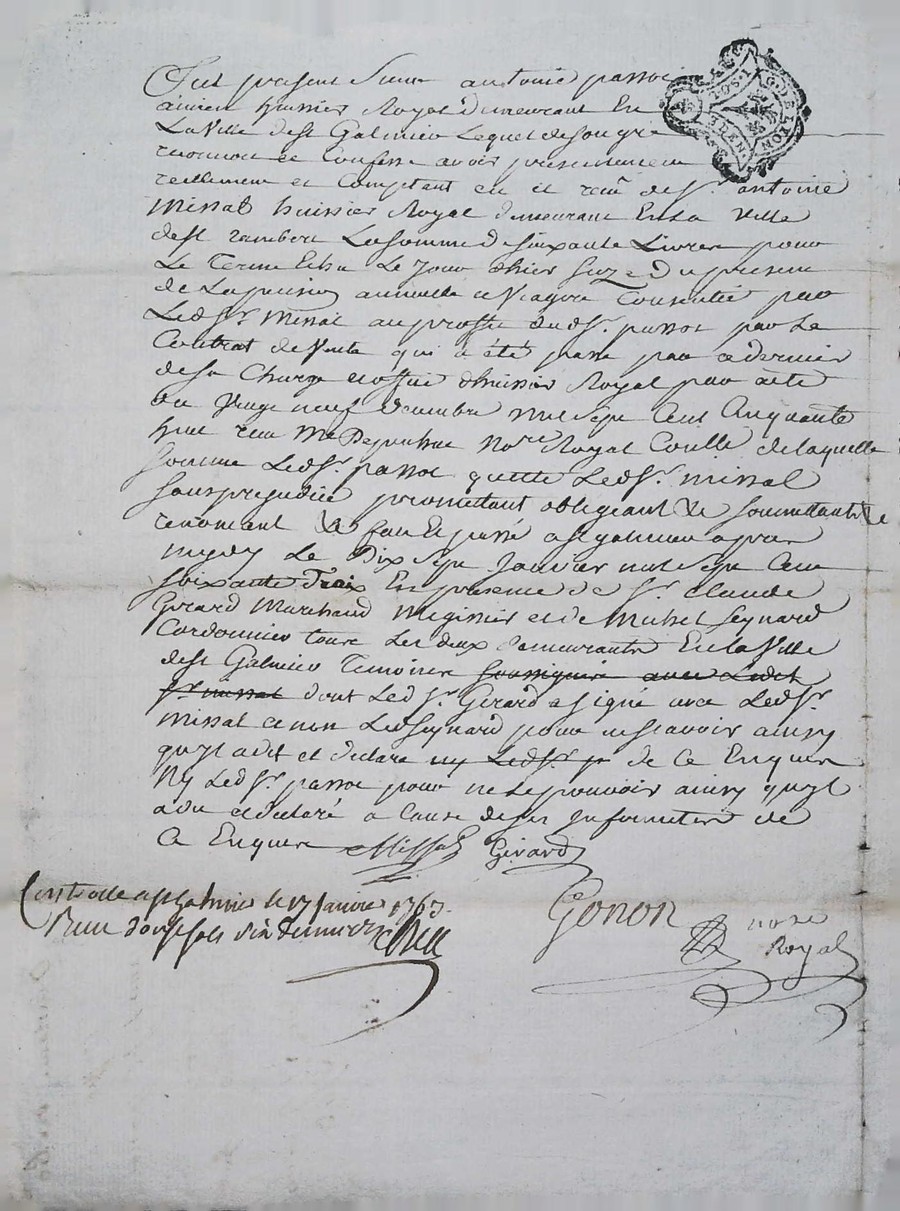 Fut present Sieur antoine passot
ancien huissier Royal demeurant En
La Ville de st Galmier Lequel de son gre
reconnoit et Confesse avoir presentement
reellement et Comptant eu et receu de Sr. antoine
Missal huissier Royal demeurant En la Ville
de st rambert La somme de soixante Livres pour
Le Terme Echu Le Jour d'hier seize du present
de La pension annuelle et Viagere Consentie par
Led. Sr. Missal au proffit dud. Sr. passot par Le
Contrat de Vente qui a été passé par ce dernier
de sa Charge et office d'huissier Royal par acte
du Vingt neuf decembre mil sept Cent Cinquante
huit receu Me no.re Royal de laquelle
somme Led. Sr. passot quitte Led. Sr. missal
sans prejudice promettant obligeant &c soumettant &c
renoncant &c fait et passé a st galmier apres
midy Le Dix sept Janvier mil sept Cent
soixante Trois En presence de Sr. Claude
Gerard Marchand Megissier et de Michel Seynard
Cordonnier tous Les deux demeurants En la Ville
de st Galmier Temoins soussignés avec Ledit
Sr. missal dont Led. Sr. Gerard a signé avec Led. Sr.
Missal et non Led. Seynard pour ne scavoir ainsy
qu'yl a dit et declare ny Led. Sr. p de Ce Enquis
Ny Led. Sr. passot pour ne Le pouvoir ainsy qu'yl
a dit et declaré a Cause de ses Infirmites de
Ce Enquis Missal Girard
Controllé a st Galmier le 17 janvier 1763.
Receu douze sols six deniers
Gonon
nore
Royal
G. DE LYON